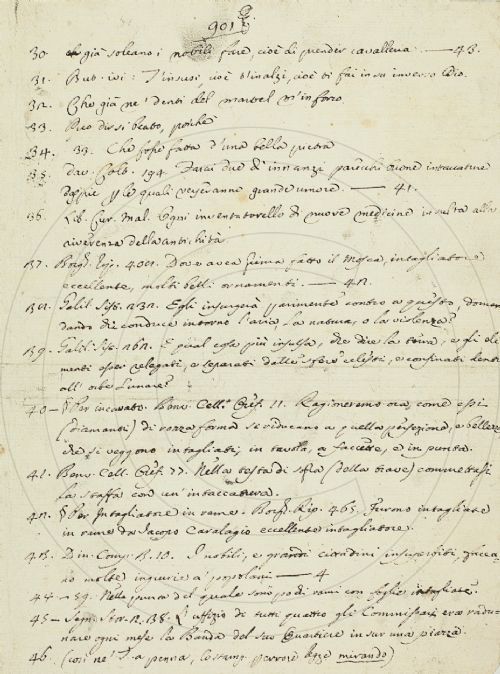 901
30. già soleano i nobili fare, cioè di prender cavalleria. — 43.
31. But. ivi: T'insusi, cioè t'inalzi, cioè ti fai in su inverso Dio.
32. Che già ne' denti del martel m'inforzo
33. Reo dissi beato, poichè
34. 33. Che fosse fatta d'una bella pietra
35. Dav. Colt. 194. Farai due dì innanzi buone intaccature
doppie, per le quali verseranno grande umore. — 41.
36. Lib. Cur. Mal. Ogni inventorello di nuove medicine insulta alla
riverenza della antichità.
37. Borgh. Rip. 401. Dove avea prima fatto il Mosca, intagliatore
eccellente, molti belli ornamenti. — 42.
38. Galil. Sist. 232. Egli insurgerà parimente contro a questo, doman-
dando chi conduce intorno l'aria, la natura, o la violenza?
39. Galil. Sist. 262. E qual cosa più insulsa, che dire la terra, e gli ele-
menti esser relegati, e separati dalle sfere celesti, e confinati dentro
all'orbe lunare?
40 — § Per incavato. Benv. Cell. Oref. 11. Ragioneremo ora, come essi
(diamanti) di rozza forma si riducano a quella perfezione, e bellezza
che si veggono intagliati, in tavola, a faccette, e in punta.
41. Benv. Cell. Oref. 77. Nella testa di sopra (della trave) commettasi
la staffa con un'intaccatura.
42. § Per Intagliatore in rame. Borgh. Rip. 465. Furono intagliate
in rame da Jacopo Caralagio eccellente intagliatore.
43. Din. Comp. 1. 10. I nobili, e grandi cittadini insuperbiti, faceva-
no molte ingiurie a' popolani — 4
44 — 59. Nella punta del quale sono podi rami con foglie intagliate.
45 — Segn. Stor. 2. 38. L'uffizio di tutti quattro gli Commissari era radu-
nare ogni mese la Banda del suo Quartiere in sur una piazza.
46. (così ne' T. a penna, lo stamp. per errore legge mirando)